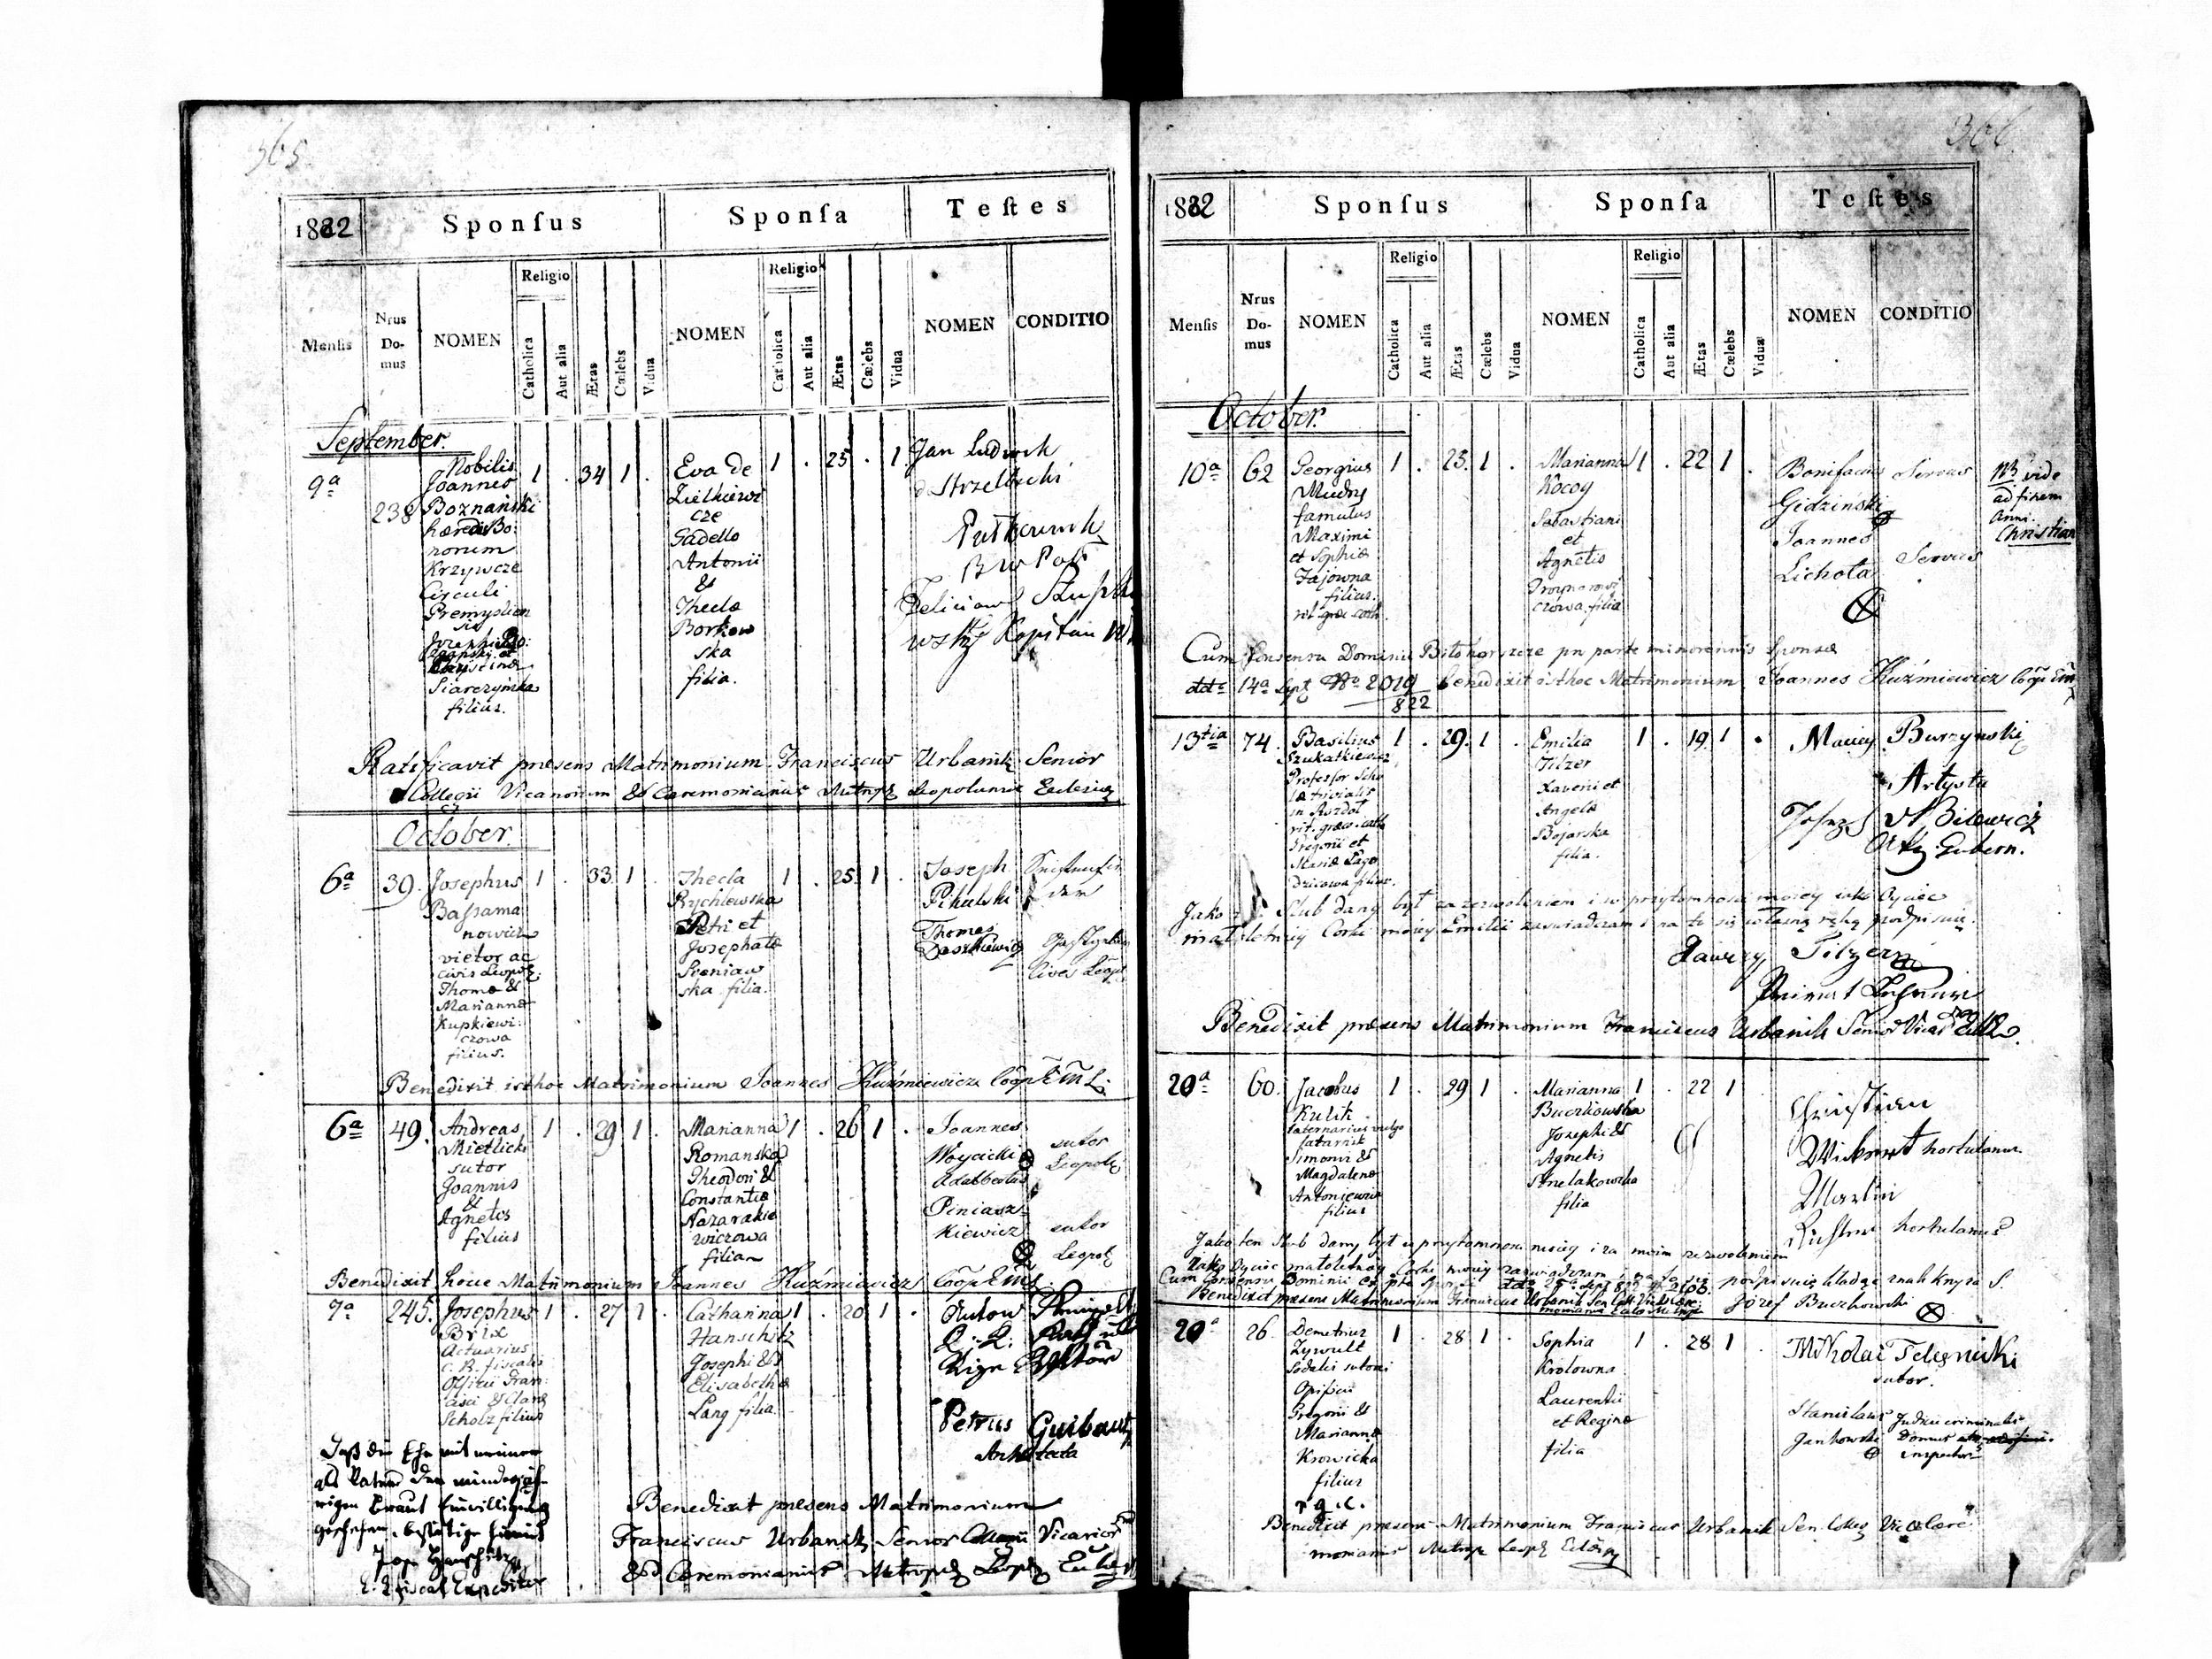 365
1822
Sponsus
Sponsa
Testes
Mensis
Nrus Domus
NOMEN
Religio
Catholica
Aut alia
Ætas
Cælebs
Vidua
NOMEN
Religio
Catholica
Aut alia
Ætas
Cælebs
Vidua
NOMEN
CONDITIO
September.
9a
238
Nobilis
Joannes
Boznański
hæres Bo:
norum
Krzywcze
Circuli
Premyslien
sis
Josephi
et
Christinæ
Siarczyńska
filius.
1 . 34 1 .
Eva de
Zielkiewi
cze
Gadello
Antonii
&
Theclæ
Borkow
ska
filia.
1 . 25 . 1
Jan Ludwik
Strzelbicki
Felician
Ratificavit præsens Matrimonium Franciscus Urbanik Senior
Collegii Vicariorum & Caeremoniarius Metrop Leopoliensis Ecclesiæ
October.
6a
39.
Josephus
Bassama
nowicz
vietor ac
civis Leopol:
Thomæ &
Mariannæ
Kupkiewi:
czowa
filius.
1 . 33 1 .
Thecla
Rychlewska
Petri et
Josephatæ
Sieniaw
ska filia.
1 . 25 1 .
Joseph
Pikulski
Thomas
Daszkiewicz
Cives Leopl
Benedixit isthoc Matrimonium Joannes Kuźmiewicz Coop EML:
6a
49.
Andreas
Mietlicki
sutor
Joannis
&
Agnetis
filius
1 . 29 1 .
Marianna
Romanska
Theodori &
Constantiæ
Nazarkie
wiczowa
filia
1 . 26 1 .
Joannes
Woycicki
sutor
Leopol
Adalbertus
Piniasz
kiewicz
sutor
Leopol
Benedixit hocce Matrimonium Joannes Kuźmiewicz Coop EML
7a
245.
Josephus
Brix
Actuarius
C. R. fiscalis
Officii Fran:
cisci & Claræ
Scholz filius
1 . 27 1 .
Catharina
Hanschitz
Josephi &
Elisabethæ
Lang filia.
1 . 20 1 .
Anton
Petrus Guibaut
Architecta
Daß die Ehe mit meiner
als Vater der minderjäh
rigen Braut Einwilligung
geschehen, bestätige hiemit
Jos. Hanschitz
Fiscal Expeditor
Benedixit præsens Matrimonium
Franciscus Urbanik Senior Collegii Vicarior
& Ceremoniarius Metropol Leopol Eccles
366.
1822
Sponsus
Sponsa
Testes
Mensis
Nrus Domus
NOMEN
Religio
Catholica
Aut alia
Ætas
Cælebs
Vidua
NOMEN
Religio
Catholica
Aut alia
Ætas
Cælebs
Viduæ
NOMEN
CONDITIO
October.
10a
62
Georgius
Mudry
famulus
Maximi
et Sophiæ
Zajowna
filius.
rit. græ. cath.
1 . 23. 1 .
Marianna
Kocog
Sebastiani
et
Agnetis
czowa filia
1 . 22 1 .
Bonifacius Servus
Gidziński
Joannes
Lichota Servus
NB vide
ad finem
Anni.
Christian
Cum Consensu Dominii Biłohorszcze pro parte minorennis Sponsæ
ddto 14a Sept No 2019/822 benedixit isthoc Matrimonium Joannes Kuźmiewicz Coop EML
13tia
74.
Basilius
Szukatkiewicz
Professor Scho
læ trivialis
in Rozdol
rit. græc. cath
Gregorii et
Mariæ Łago
dzicowa filius.
1 . 29. 1 .
Emilia
Tilzer
Xaverii et
Angelæ
Bojarska
filia.
1 . 19 1 .
Maciej Burzynski
Artysta
Józef A Bilewicz
Gubern.
Jako Slub dany był za zezwoleniem i w przytomności moiey iako Oyciec
małoletniey Corki moiey Emilii zaswiadczam i na to się własną ręką podpisuię.
Xawery Tilzer
Benedixit præsens Matrimonium Franciscus Urbanik Senior Vicar
20a
60.
Jacobus
Kulik
laternarius vulgo
latarnik
Simonis &
Magdalenæ
Antoniewicz
filius
1 . 29 1 .
Marianna
Buczkowska
Josephi &
Agnetis
Strelakowska
filia
1 . 22 1
Christian
hortulanus
Martin
Richter hortulanus
Jako ten Slub dany był w przytomności moiey i za moim zezwoleniem
iako Oyciec małoletniey Corki moiey zaswiadczam i na to się podpisuię kładąc znak Krzyża S.
Cum Consensu Dominii ddto 25a Sept 822 N 2166.
Benedixit præsens Matrimonium Franciscus Urbanik Sen Coll Vic & Cære
moniarius
Józef Buczkowski
20a
26.
Demetrius
Zywult
Sodalis sutorii
Opificii
Gregorii &
Mariannæ
Krowicka
filius
r. g. c.
1 . 28 1 .
Sophia
Krolowna
Laurentii
et Reginæ
filia
1 . 28 1 .
Mikolai Telesnicki
sutor.
Stanislaus
Jankowski
Judicii criminalis
Domus
inspector
Benedixit præsens Matrimonium Franciscus Urbanik Sen. Colleg Vic & Cære
moniarius Metrop Leopol Ecclesiæ